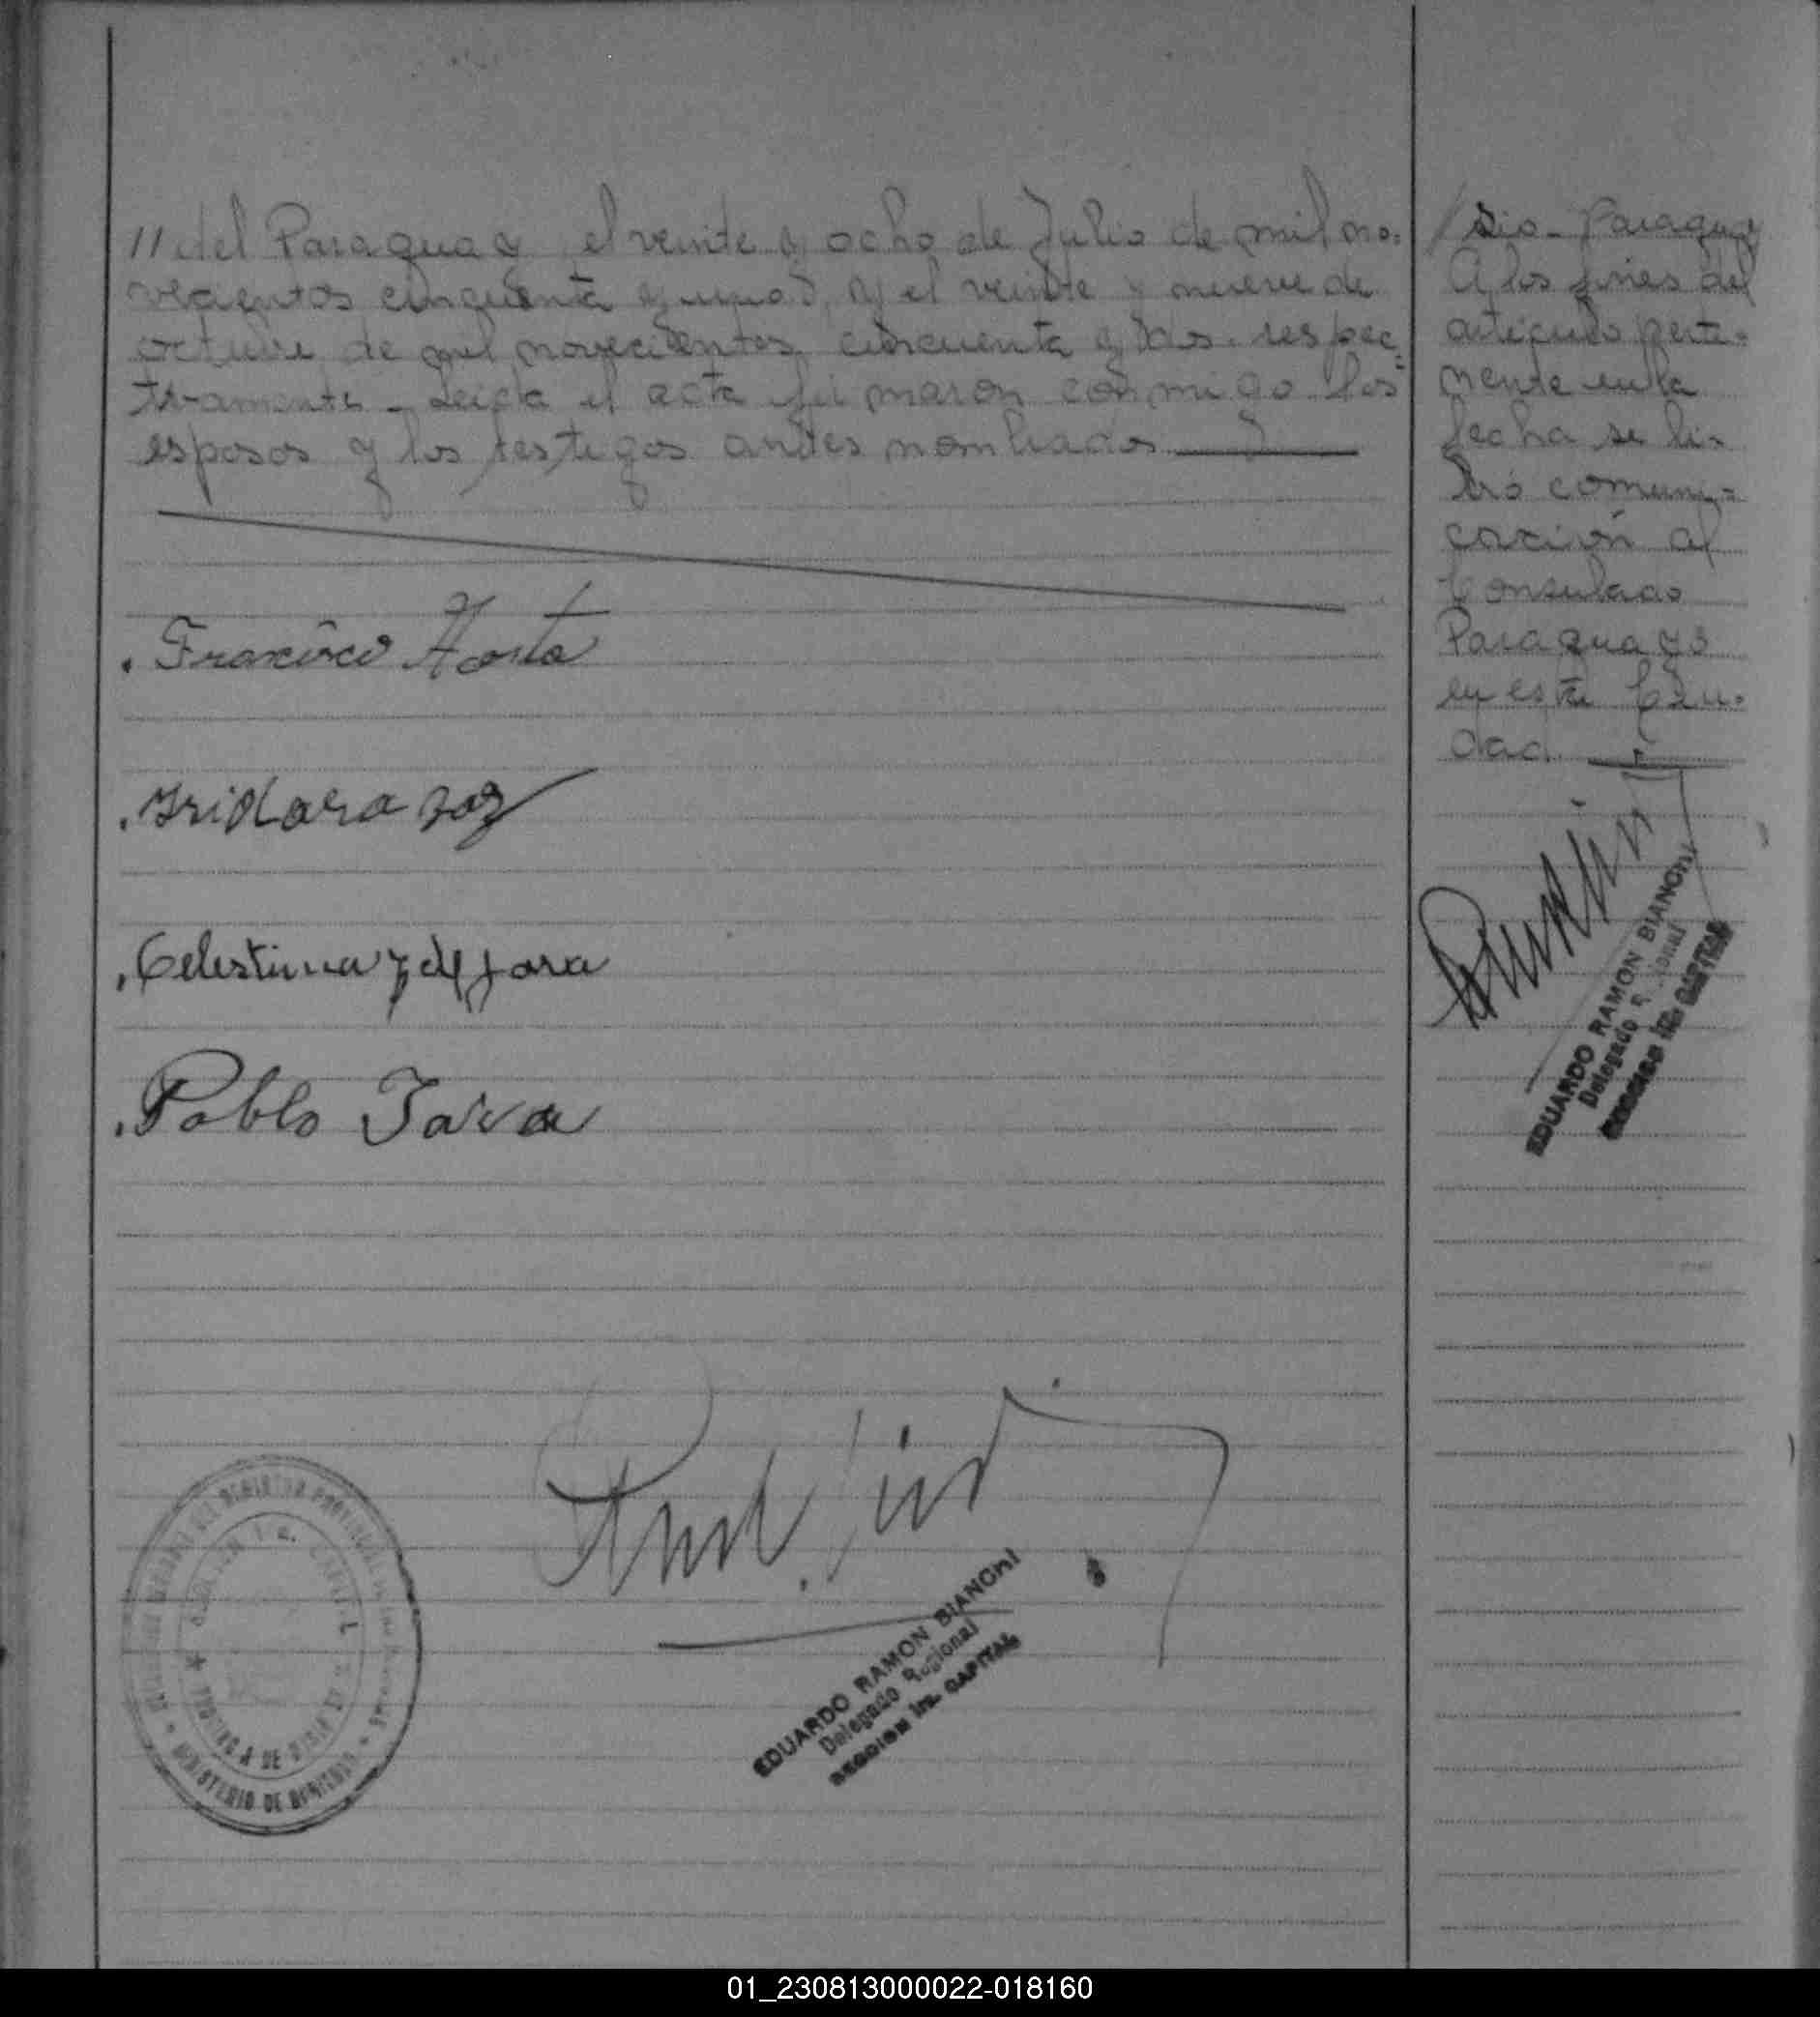 // del Paraguay, el veinte y ocho de Julio de mil no=
vecientos cincuenta y uno, y el veinte y nueve de
octubre de mil novecientos cincuenta y dos. respec=
tivamente - Leida el acta firmaron conmigo los
esposos y los testigos antes nombrados
Francisco Acosta
Celestina de Jara
Pablo Jara
EDUARDO RAMON BIANCHI
Delegado Regional
REGION CAPITAL
MINISTERIO DE GOBIERNO
/ sio - Paraguay
A los fines del
articulo perti=
nente en la
fecha se li=
bró comuni=
cación al
Consulado
Paraguayo
en esta Ciu=
dad.
EDUARDO RAMON BIANCHI
Delegado
CAPITAL
01_230813000022-018160